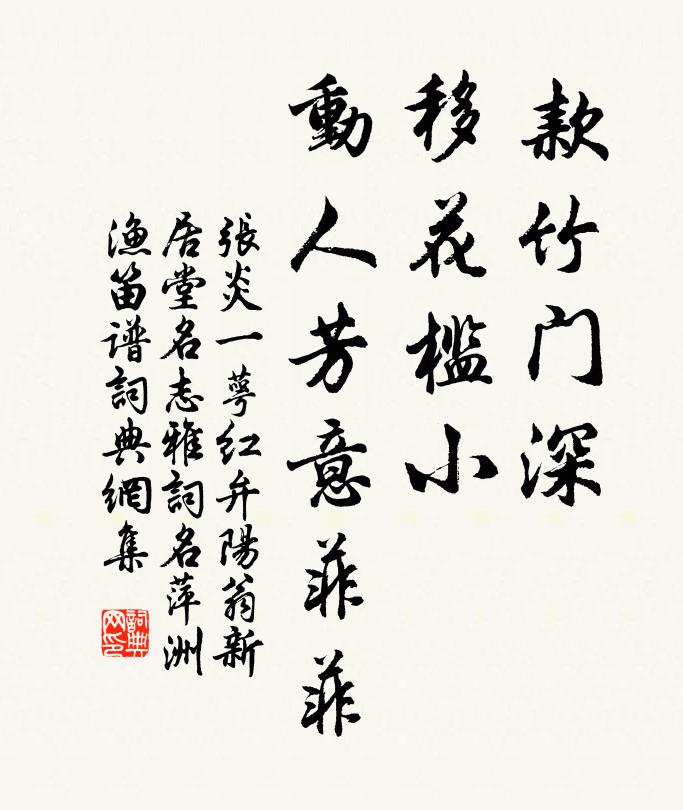 款竹门深
移花檻小
動人芳意菲菲
張炎一萼紅弁陽翁新
居堂名志雅詞名萍洲
漁笛谱詞典網集
詞典网印